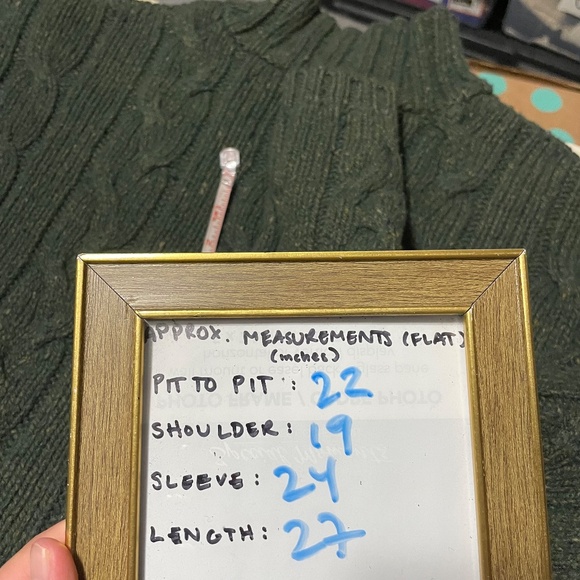 APPROX. MEASUREMENTS (FLAT)
(inches)
PIT TO PIT : 22
SHOULDER: 19
SLEEVE: 24
LENGTH: 27
PHOTO FRAME /